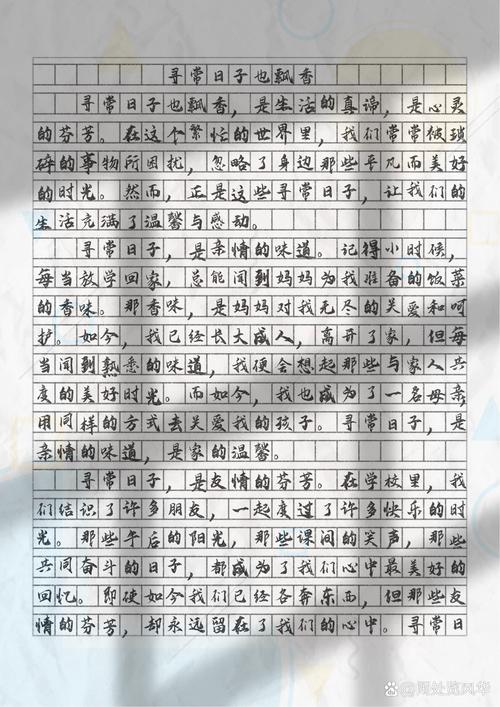 寻常日子也飘香
寻常日子也飘香，是生活的真谛，是心灵
的芬芳。在这个繁忙的世界里，我们常常被琐
碎的事物所困扰，忽略了身边那些平凡而美好
的时光。然而，正是这些寻常日子，让我们的
生活充满了温馨与感动。
寻常日子，是亲情的味道。记得小时候，
每当放学回家，总能闻到妈妈为我准备的饭菜
的香味。那香味，是妈妈对我无尽的关爱和呵
护。如今，我已经长大成人，离开了家，但每
当闻到熟悉的味道，我便会想起那些与家人共
度的美好时光。而如今，我也成为了一名母亲，
用同样的方式去关爱我的孩子。寻常日子，是
亲情的味道，是家的温馨。
寻常日子，是友情的芬芳。在学校里，我
们结识了许多朋友，一起度过了许多快乐的时
光。那些午后的阳光，那些课间的笑声，那些
共同奋斗的日子，都成为了我们心中最美好的
回忆。即使如今我们已经各奔东西，但那些友
情的芬芳，却永远留在了我们的心中。寻常日